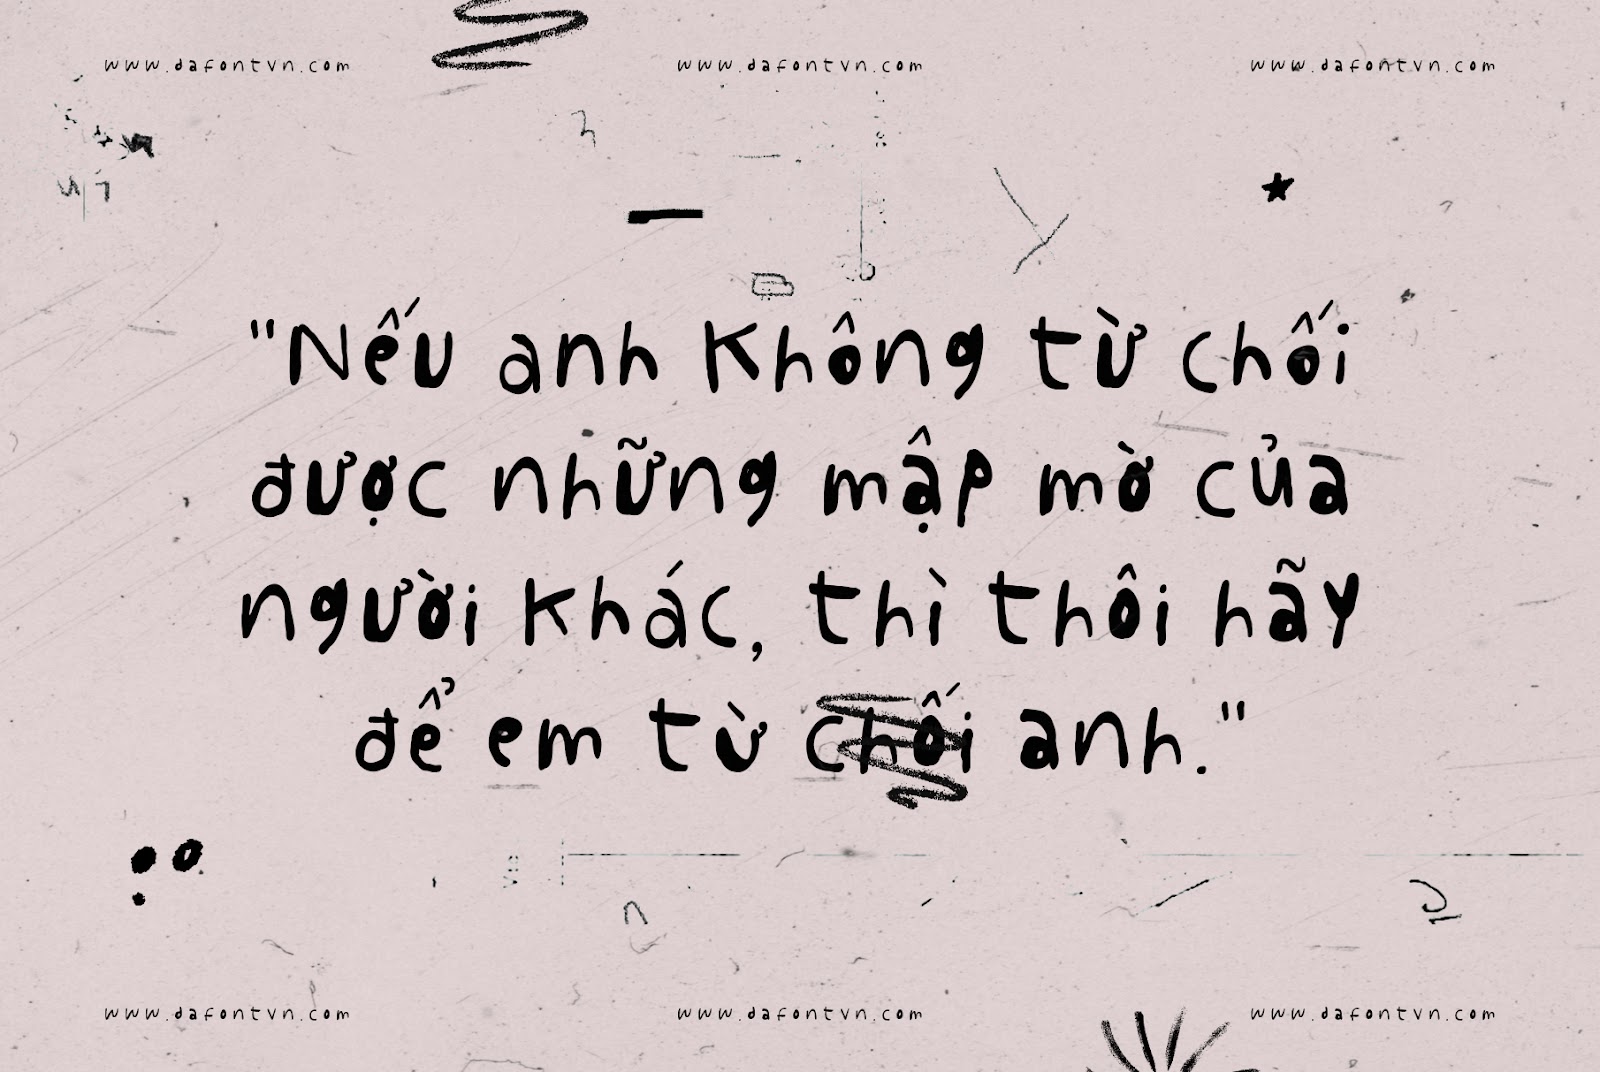 www.dafontvn.com www.dafontvn.com www.dafontvn.com
"Nếu anh không từ chối
được những mập mờ của
người khác, thì thôi hãy
để em từ chối anh."
www.dafontvn.com www.dafontvn.com www.dafontvn.com